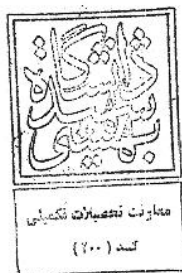 دانشگاه شهید بهشتی
معاونت تحصیلات تکمیلی
کد (۲۰۰)